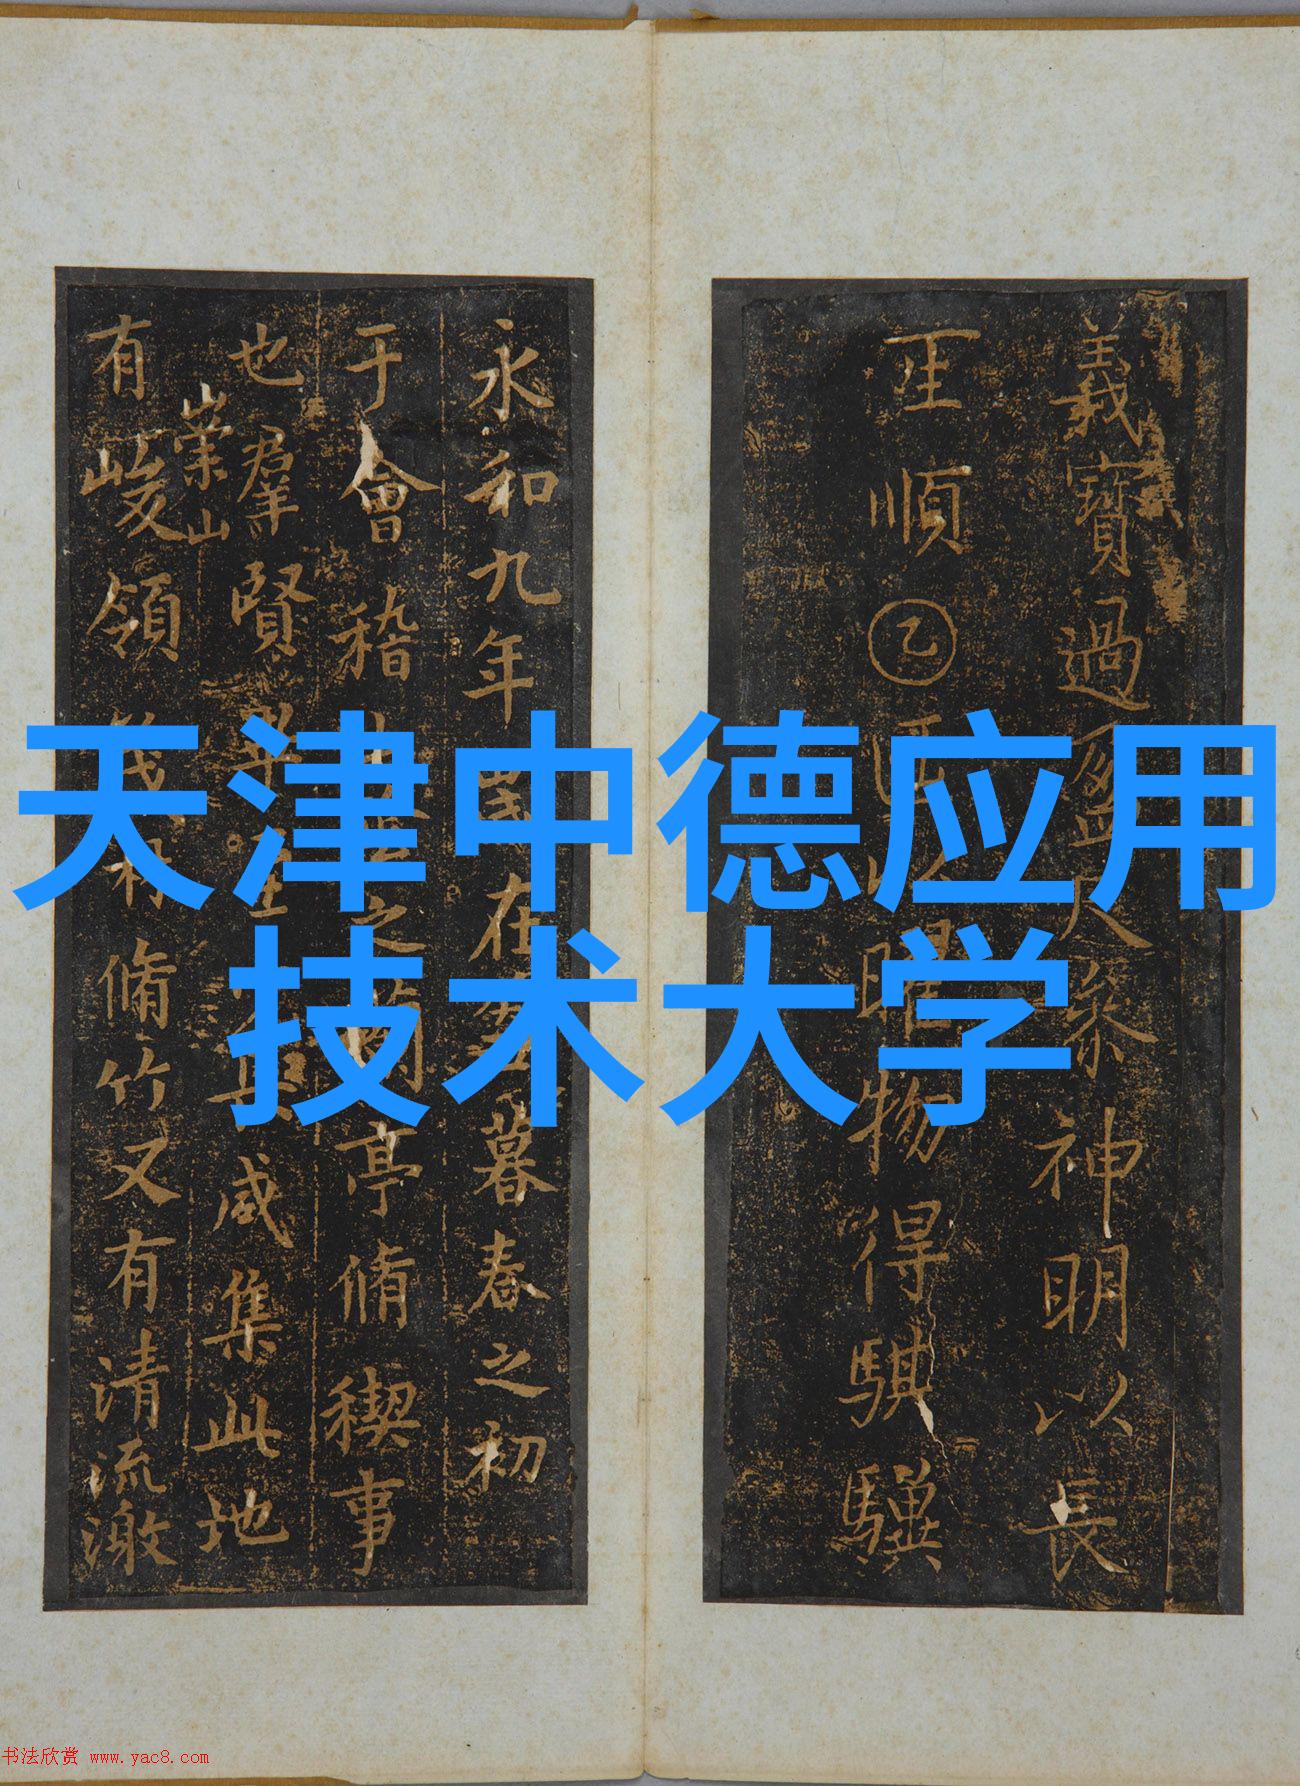 天津中德应用
技术大学
義寶過盈尺聚神明以長
順乙曜物得騏驥
永和九年歲在癸丑暮春之初
于會稽山陰之蘭亭脩禊事
也羣賢畢至咸集此地
崇山
有峻領茂林脩竹又有清流激
书法欣赏 www.yac8.com